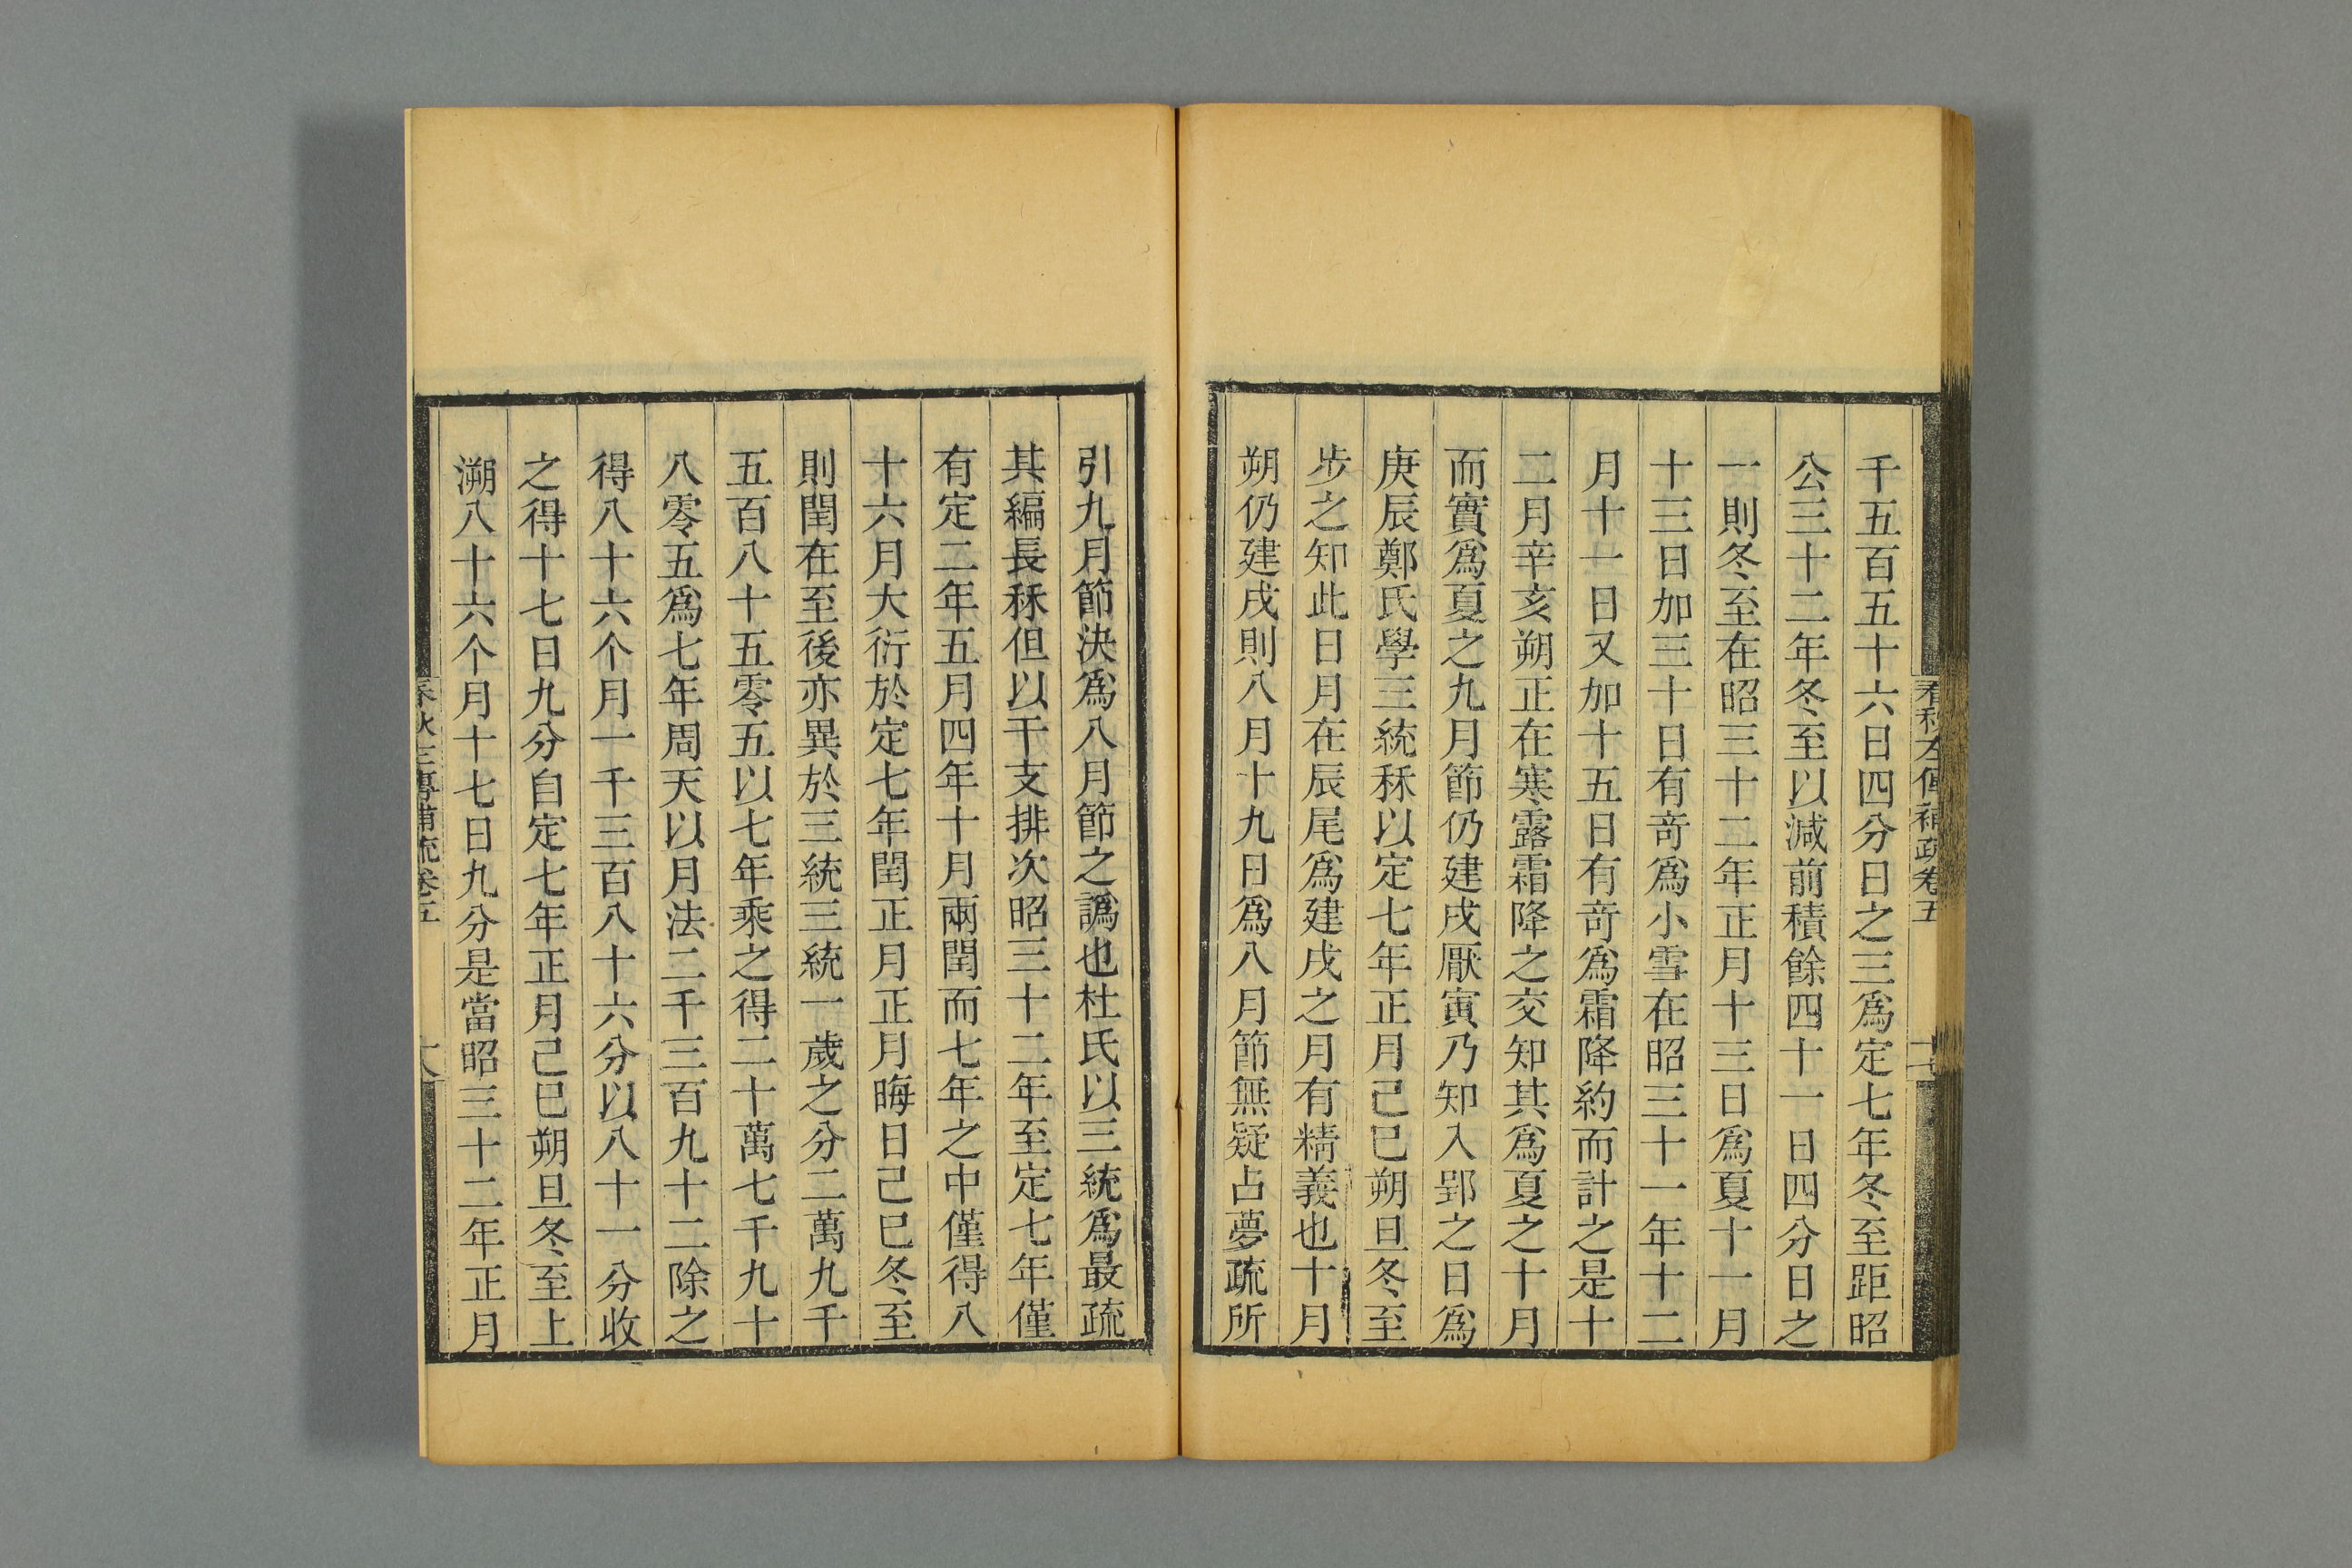 春秋左傳補疏卷五
十七
千五百五十六日四分日之三爲定七年冬至距昭
公三十二年冬至以減前積餘四十一日四分日之
一則冬至在昭三十二年正月十三日爲夏十一月
十三日加三十日有竒爲小雪在昭三十一年十二
月十一日又加十五日有竒爲霜降約而計之是十
二月辛亥朔正在寒露霜降之交知其爲夏之十月
而實爲夏之九月節仍建戌厭寅乃知入郢之日爲
庚辰鄭氏學三統秝以定七年正月己巳朔旦冬至
步之知此日月在辰尾爲建戌之月有精義也十月
朔仍建戌則八月十九日爲八月節無疑占夢疏所
引九月節決爲八月節之譌也杜氏以三統爲最疏
其編長秝但以干支排次昭三十二年至定七年僅
有定二年五月四年十月兩閏而七年之中僅得八
十六月大衍於定七年閏正月正月晦日己巳冬至
則閏在至後亦異於三統三統一歲之分二萬九千
五百八十五零五以七年乘之得二十萬七千九十
八零五爲七年周天以月法二千三百九十二除之
得八十六个月一千三百八十六分以八十一分收
之得十七日九分自定七年正月己巳朔旦冬至上
溯八十六个月十七日九分是當昭三十二年正月
春秋左傳補疏卷五
十八